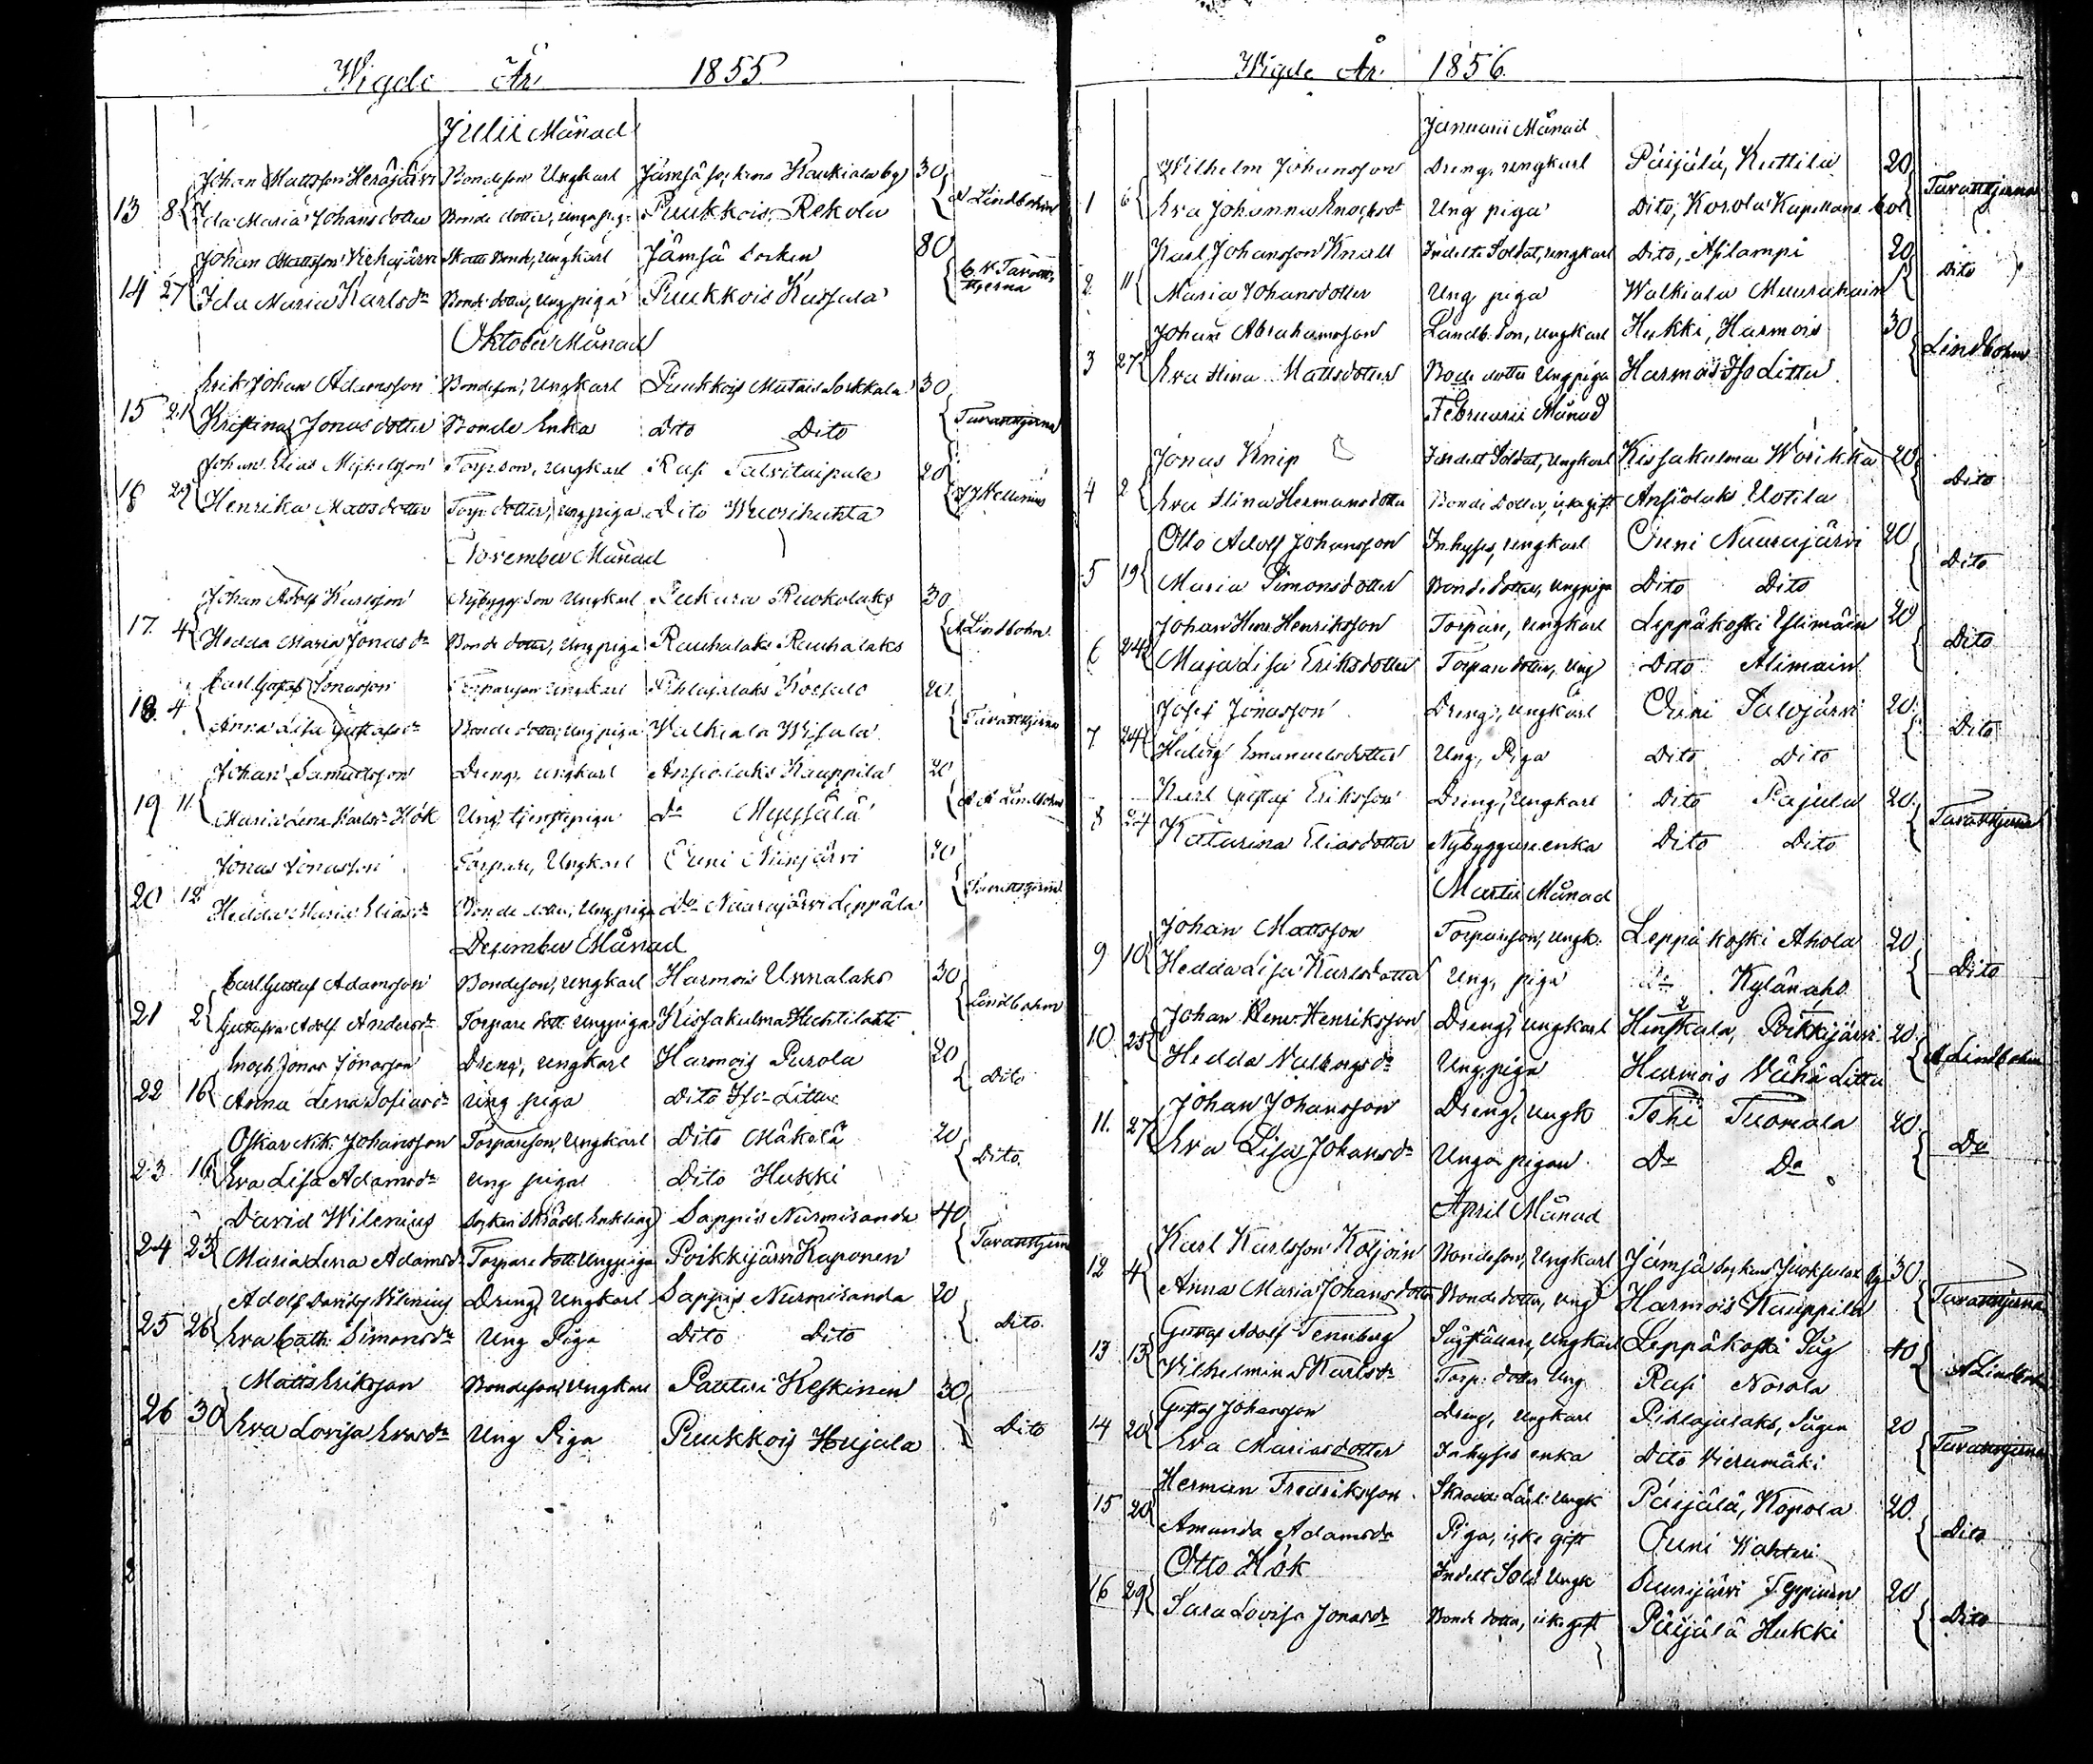 Wigde År 1855
Julii Månad
Johan Mattsson Heräjärvi Bondeson Ungkarl Jämsä sockens Kaukiala by 30
13 8 Ida Maria Johansdotter Bonde dotter, unga pig: Puukkois, Rekola A Lindbohm
Johan Mattsson Skatte Bonde, ungkarl Jämsä Socken 80
14 27 Ida Maria Karlsdr Bonde dotter, Ung piga Puukkois Kassala
Oktober Månad
Erik Johan Adamsson Bondeson, Ungkarl Puukkois 30
15 21 Kristina Jonasdotter Bonde Enka Dito Dito Tavasttjerna
Johan Elias Michelsson Torp. Son, ungkarl Rasi Talvitaipale 20
16 29 Henrika Mattsdotter Torp. dotter, ung piga Dito Wuorihuhta
November Månad
Johan Adolf Karlsson Nybygg. Son Ungkarl Ruokolaks 30
17. 4 Hedda Maria Jonasdr Bonde dotter, Ung piga Rauhalaks Rauhalaks A Lindbohm
Carl Gustaf Jonasson Torpareson Ungkarl Pihlajalaks 20
18. 4 Anna Lisa Gustafsdr Bonde dotter, Ung piga Walkiala Wisala Tavasttjerna
Johan Samuelsson Dreng, ungkarl Ansiolaks Kauppila 20
19 11. Maria Lena Karlsdr Hök Ung tjenstepiga dr A Lindbohm
Jonas Jonasson Torpare, Ungkarl Ouni 20
20 12 Hedda Maria Eliasdr Bonde dotter, Ung piga Dr Naarajärvi Leppälä Tavasttjerna
December Månad
Carl Gustaf Adamsson Bondeson, ungkarl Harmois Unnalaks 30
21 2 Gustafva Adolf. Andersdr Torpare dott. Ung piga Kissakulma Huhtilahti Lindbohm
Enoch Jonas Jonasson Dreng, ungkarl Harmois Purola 20
22 16 Anna Lena Sofiasdr Ung piga Dito Iso-Littu Dito
Oskar Nik: Johansson Torpareson, Ungkarl Dito Mäkelä 20
23 16 Eva Lisa Adamsdr Ung piga Dito Hukki Dito.
David Wilenius Socken Skrädd. Enkling Sappis Nurmisanda 40
24 23 Maria Lena Adamsdr Torpare dott. Ung piga Poikkijärvi Kaponen Tavasttjerna
Adolf Davids Wilenius Dreng, Ungkarl Sappis Nurmisanda 20
25 26 Eva Cath. Simonsdr Ung Piga Dito Dito Dito
Matts Eriksson Bondeson, Ungkarl Pauteri Keskinen 30
26 30 Eva Lovisa Evasdr Ung Piga Puukkois Hujala Dito
Wigde År 1856.
Januarii Månad
Wilhelm Johansson Dreng, ungkarl Päijälä, Kuttila 20
1 6 Eva Johanna Enochsdr Ung piga Dito, Korola Kapellans bol Tavasttjerna
Karl Johansson Knall Indelte Soldat, ungkarl Dito, Asilampi 20
2 11 Maria Johansdotter Ung piga Walkiala Dito
Johan Abrahamsson Landb. Son, ungkarl Hukki, Harmois 30
3 27 Eva Stina Mattsdotter Bonde dotter Ung piga Harmois Iso Littu Lindbohm
Februarii Månad
Jonas Knip Indelt Soldat, ungkarl Kissakulma Worikka 20
4 2 Eva Stina Hermansdotter Bonde Dotter, icke gift Ansiolaks Uotila Dito
Otto Adolf Johansson Inhyses, ungkarl Ouni Naarajärvi 20
5 19 Maria Simonsdotter Bonde dotter, Ung piga Dito Dito Dito
Johan Henr Henriksson Torpare, ungkarl Leppäkoski Ylimäin 20
6 24 Maja Lisa Eriksdotter Torpare dotter, Ung Dito Alimain Dito
Josef Jonasson Dreng, ungkarl Ouni Salojärvi 20
7. 24 Hedvig Emanuelsdotter Ung, Piga Dito Dito Dito
Karl Gustaf Eriksson Dreng, Ungkarl Dito Pajula 20
8 24 Katarina Eliasdotter Nybyggare enka Dito Dito Tavasttjerna
Martii Månad
Johan Mattsson Torpareson, ungk. Leppäkoski Ahola 20
9 10 Hedda Lisa Karlsdotter Ung, piga Dr Kylänaho Dito
Johan Henr. Henriksson Dreng, ungkarl Poikkijärvi 20
10 25 Hedda Ung, piga Harmois Vähä Littu A Lindbohm
Johan Johansson Dreng, ungk Tehi Tuomala 20
11. 27 Eva Lisa Johansdr Unga pigan Dr Dr Do
April Månad
Karl Karlsson Koljoin Bondeson, Ungkarl Jämsä Sockens Juoksulax By 30
12 4 Anna Maria Johansdotter Bonde dotter, ung Harmois Kauppila Tavasttjerna
Gustaf Adolf Tennberg Sågställare, Ungkarl Leppäkoski Såg 40
13 13 Wilhelmina Karlsdr Torp: dotter Ung Rasi Norola A Lindbohm
Gustaf Johansson Dreng, ungkarl Pihlajalaks, Sågen 20
14 20 Eva Mariasdotter Inhyses enka Dito Vierumäki Tavasttjerna
Herman Fredriksson Skrädd: Lärl: Ungk Päijälä, Kopola 20.
15 20 Amanda Adamsdr Piga, icke gift Ouni Dito
Otto Hök Indelt Sold Ungk 20
16 29 Sara Lovisa Jonasdr Bonde dotter, icke gift Päijälä Hukki Dito